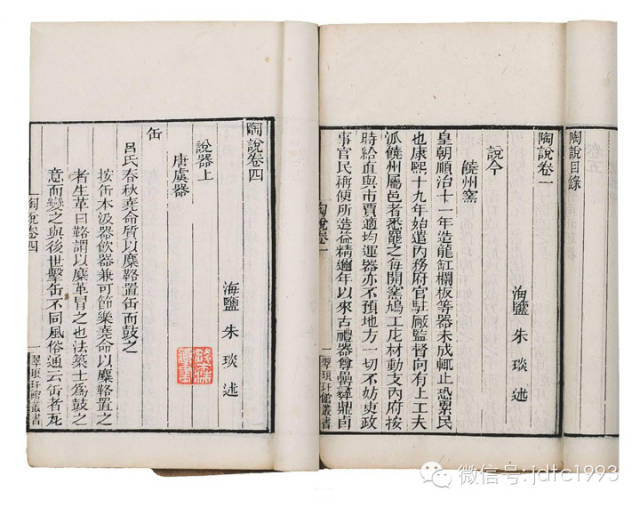 陶說目錄
陶說卷一
海鹽 朱琰 述
說今
饒州窯
皇朝順治十一年造龍缸欄板等器未成輒止恐累民
也康熙十九年始遣內務府官駐廠監督向有上工夫
派饒州屬邑者悉罷之每開窯鳩工庀材動支內府按
時給直與市賈適均運器亦不預地方一切不妨吏政
事官民稱便所造益精邇年以來古禮器尊罍彝鼎卣
陶說卷一
翠琅玕館叢書
陶說卷四
海鹽 朱琰 述
說器上
唐虞器
缶
呂氏春秋堯命質以麋𩊚置缶而鼓之
按缶本汲器飲器兼可節樂堯命以麋𩊚置之
者生革曰𩊚謂以麋革冒之也法築土為鼓之
意而變之與後世擊缶不同風俗通云缶者瓦
陶說卷四
翠琅玕館叢書
微信号:jdtc1993